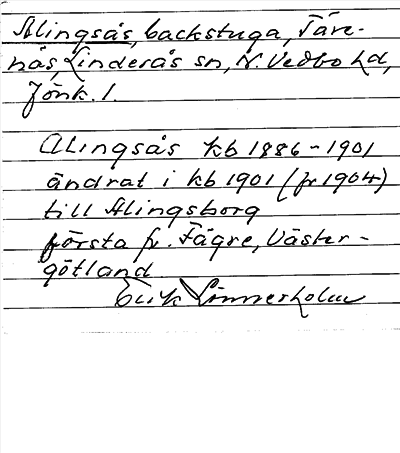 Alingsås, backstuga, Täre-
nås, Linderås sn, N. Vedbo hd,
Jönk. l.
Alingsås kb 1886-1901
ändrat i kb 1901 (fr 1904)
till Alingsborg
första fr. Fägre, Väster-
götland
Erik Linnerholm